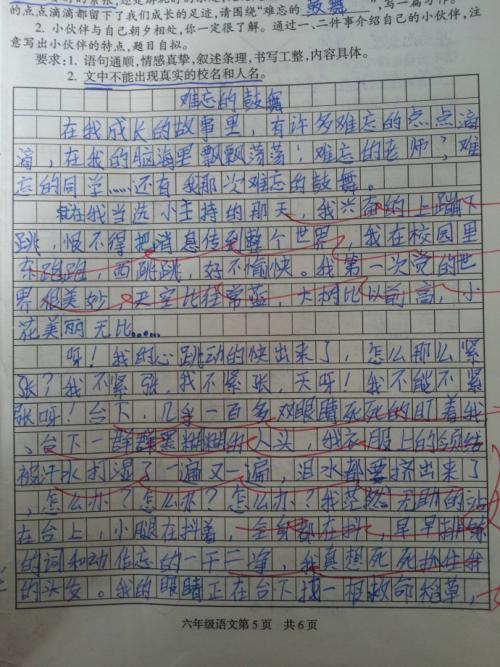 的点点滴滴都留下了我们成长的足迹,请围绕“难忘的 鼓舞
2. 小伙伴与自己朝夕相处,你一定很了解。通过一、二件事介绍自己的小伙伴,注
意写出小伙伴的特点,题目自拟。
要求:1. 语句通顺,情感真挚,叙述条理,书写工整,内容具体。
2. 文中不能出现真实的校名和人名。
难忘的鼓舞
在我成长的故事里,有许多难忘的点点滴
滴,在我的脑海里飘飘荡荡:难忘的老师,难
忘的同学……还有我那次难忘的鼓舞。
在我当选小主持的那天,我兴奋的上蹦下
跳,恨不得把消息传到整个世界,我在校园里
东跑跑,西跳跳,好不愉快。我第一次觉的世
界很美妙,天空比往常蓝,大树比以前高,小
花美丽无比……
呀!我的心跳动的快出来了,怎么那么紧
张?我不紧张,我不紧张,天呀!我不能不紧
张呀!台下,几乎一百多双眼睛死死的盯着我
、台下一群群黑糊糊的人头,我衣服上的领结
被汗水打湿了一遍又一遍,泪水都要挤出来了
,怎么办?怎么办?怎么办?我茫然无助的站
在台上,小腿在抖着,全身都在抖,早早排练
的词和动作忘的一干二净,我真想死死抓住我
的头发。我的眼睛正在台下找一根救命稻草,
六年级语文第5页 共6页